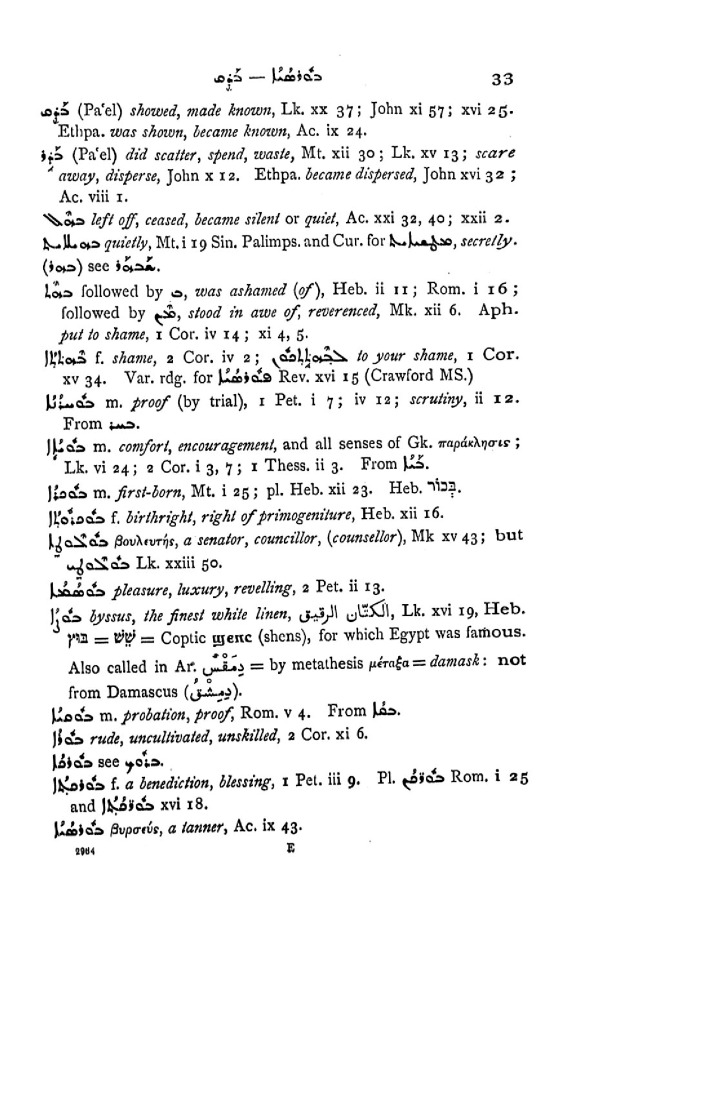 ܒܕܩ — ܒܘܪܣܝܐ 33
ܒܕܩ (Paʿel) showed, made known, Lk. xx 37; John xi 57; xvi 25.
Ethpa. was shown, became known, Ac. ix 24.
ܒܕܪ (Paʿel) did scatter, spend, waste, Mt. xii 30; Lk. xv 13; scare
away, disperse, John x 12. Ethpa. became dispersed, John xvi 32;
Ac. viii 1.
ܒܗܠ left off, ceased, became silent or quiet, Ac. xxi 32, 40; xxii 2.
ܒܗܝܠܐܝܬ quietly, Mt. i 19 Sin. Palimps. and Cur. for ܡܛܫܝܐܝܬ, secretly.
(ܒܗܪ) see ܫܒܗܪ.
ܒܗܬ followed by ܒ, was ashamed (of), Heb. ii 11; Rom. i 16;
followed by ܡܢ, stood in awe of, reverenced, Mk. xii 6. Aph.
put to shame, 1 Cor. iv 14; xi 4, 5.
ܒܗܬܬܐ f. shame, 2 Cor. iv 2; ܠܒܗܬܬܟܘܢ to your shame, 1 Cor.
xv 34. Var. rdg. for ܦܘܪܣܝܐ Rev. xvi 15 (Crawford MS.)
ܒܘܚܪܢܐ m. proof (by trial), 1 Pet. i 7; iv 12; scrutiny, ii 12.
From ܒܚܪ.
ܒܘܝܐܐ m. comfort, encouragement, and all senses of Gk. παράκλησις;
Lk. vi 24; 2 Cor. i 3, 7; 1 Thess. ii 3. From ܒܝܐ.
ܒܘܟܪܐ m. first-born, Mt. i 25; pl. Heb. xii 23. Heb. בְּכוֹר.
ܒܘܟܪܘܬܐ f. birthright, right of primogeniture, Heb. xii 16.
ܒܘܠܘܛܐ βουλευτής, a senator, councillor, (counsellor), Mk xv 43; but
ܒܘܠܘܛܣ Lk. xxiii 50.
ܒܘܣܡܐ pleasure, luxury, revelling, 2 Pet. ii 13.
ܒܘܨܐ byssus, the finest white linen, الكتّان الرقيق, Lk. xvi 19, Heb.
בּוּץ = שֵׁשׁ = Coptic ϣⲉⲛⲥ (shens), for which Egypt was famous.
Also called in Ar. دِمَقْسٌ = by metathesis μέταξα = damask: not
from Damascus (دِمِشْقُ).
ܒܘܩܝܐ m. probation, proof, Rom. v 4. From ܒܩܐ.
ܒܘܪܐ rude, uncultivated, unskilled, 2 Cor. xi 6.
ܒܘܪܟܐ see ܒܪܟ.
ܒܘܪܟܬܐ f. a benediction, blessing, 1 Pet. iii 9. Pl. ܒܘܪܟܢ Rom. i 25
and ܒܘܪܟܬܐ xvi 18.
ܒܘܪܣܝܐ βυρσεύς, a tanner, Ac. ix 43.
2984 E